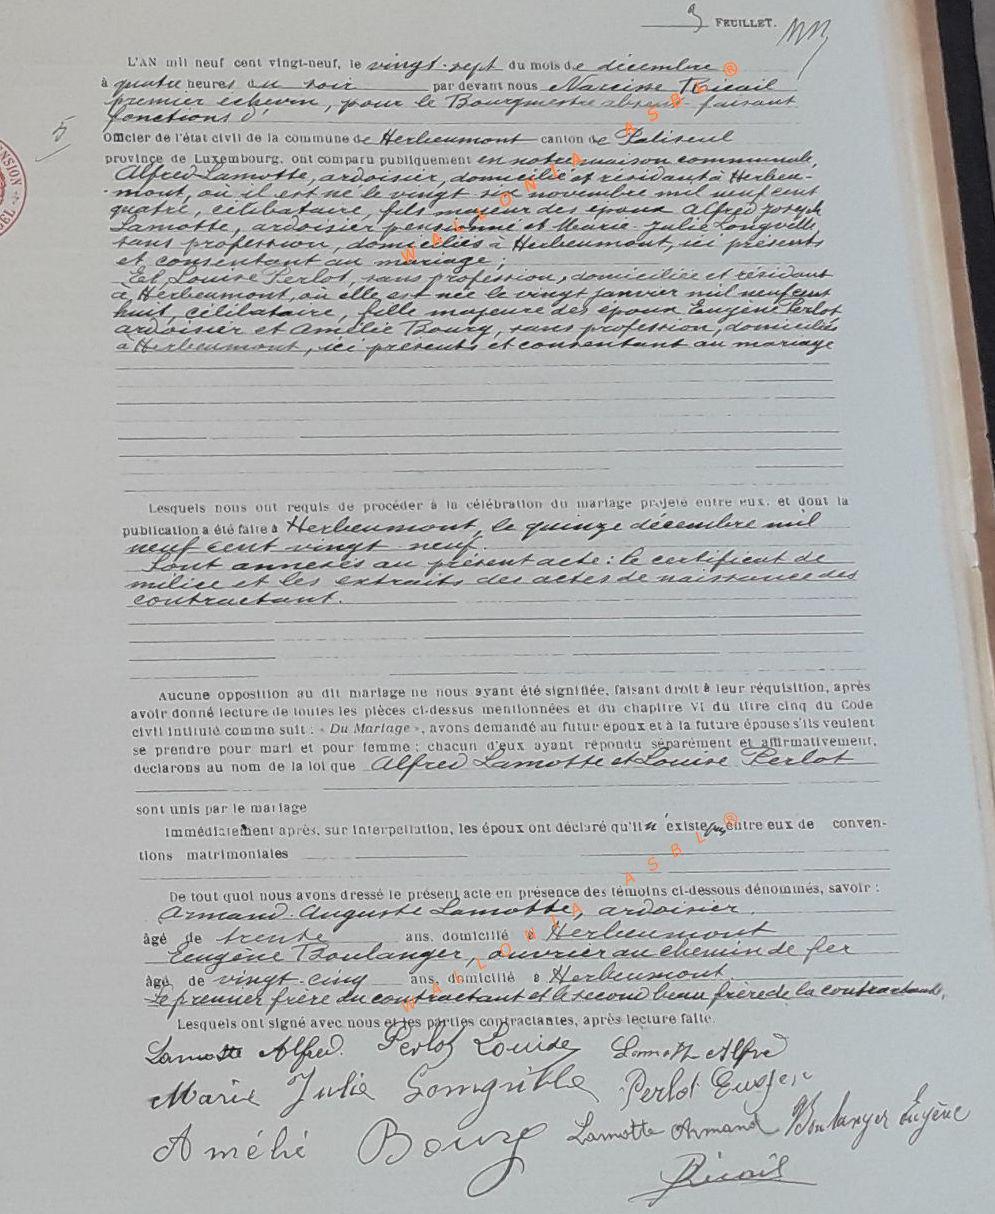 9 FEUILLET.
L'AN mil neuf cent vingt-neuf, le vingt-sept du mois de décembre
à quatre heures du soir par devant nous Narcisse Ricail
premier échevin, pour le Bourgmestre absent faisant
fonctions d'
5
officier de l'état civil de la commune de Herbeumont canton de Paliseul
province de Luxembourg, ont comparu publiquement en notre maison communale,
Alfred Lamotte, ardoisier, domicilié et résidant à Herbeu-
mont, où il est né le vingt six novembre mil neuf cent
quatre, célibataire, fils majeur des époux Alfred Joseph
Lamotte, ardoisier pensionné et Marie-Julie Longville
sans profession, domiciliés à Herbeumont, ici présents
et consentant au mariage ;
Et, Louise Perlot, sans profession, domiciliée et résidant
à Herbeumont, où elle est née le vingt janvier mil neuf cent
huit, célibataire, fille majeure des époux Eugène Perlot
ardoisier et Amélie Bourg, sans profession, domiciliés
à Herbeumont, ici présents et consentant au mariage
Lesquels nous ont requis de procéder à la célébration du mariage projeté entre eux, et dont la
publication a été faite à Herbeumont, le quinze décembre mil
neuf cent vingt-neuf.
Sont annexés au présent acte : le certificat de
milice et les extraits des actes de naissance des
contractant.
Aucune opposition au dit mariage ne nous ayant été signifiée, faisant droit à leur réquisition, après
avoir donné lecture de toutes les pièces ci-dessus mentionnées et du chapitre VI du titre cinq du Code
civil intitulé comme suit : « Du Mariage », avons demandé au futur époux et à la future épouse s'ils veulent
se prendre pour mari et pour femme ; chacun d'eux ayant répondu séparément et affirmativement,
déclarons au nom de la loi que Alfred Lamotte et Louise Perlot
sont unis par le mariage
Immédiatement après, sur interpellation, les époux ont déclaré qu'il n'existe pas entre eux de conven-
tions matrimoniales
De tout quoi nous avons dressé le présent acte en présence des témoins ci-dessous dénommés, savoir :
Armand-Auguste Lamotte, ardoisier
âgé de trente ans, domicilié à Herbeumont
Eugène Boulanger, ouvrier au chemin de fer
âgé de vingt-cinq ans, domicilié à Herbeumont
Le premier frère du contractant et le second beau frère de la contractante,
Lesquels ont signé avec nous et les parties contractantes, après lecture faite.
Lamotte Alfred. Perlot Louise Lamotte Alfred
Marie Julie Longville Perlot Eugène
Amélie Bourg Lamotte Armand Boulanger Eugène
Ricail
WALLONIA ASBL®
WALLONIA ASBL®